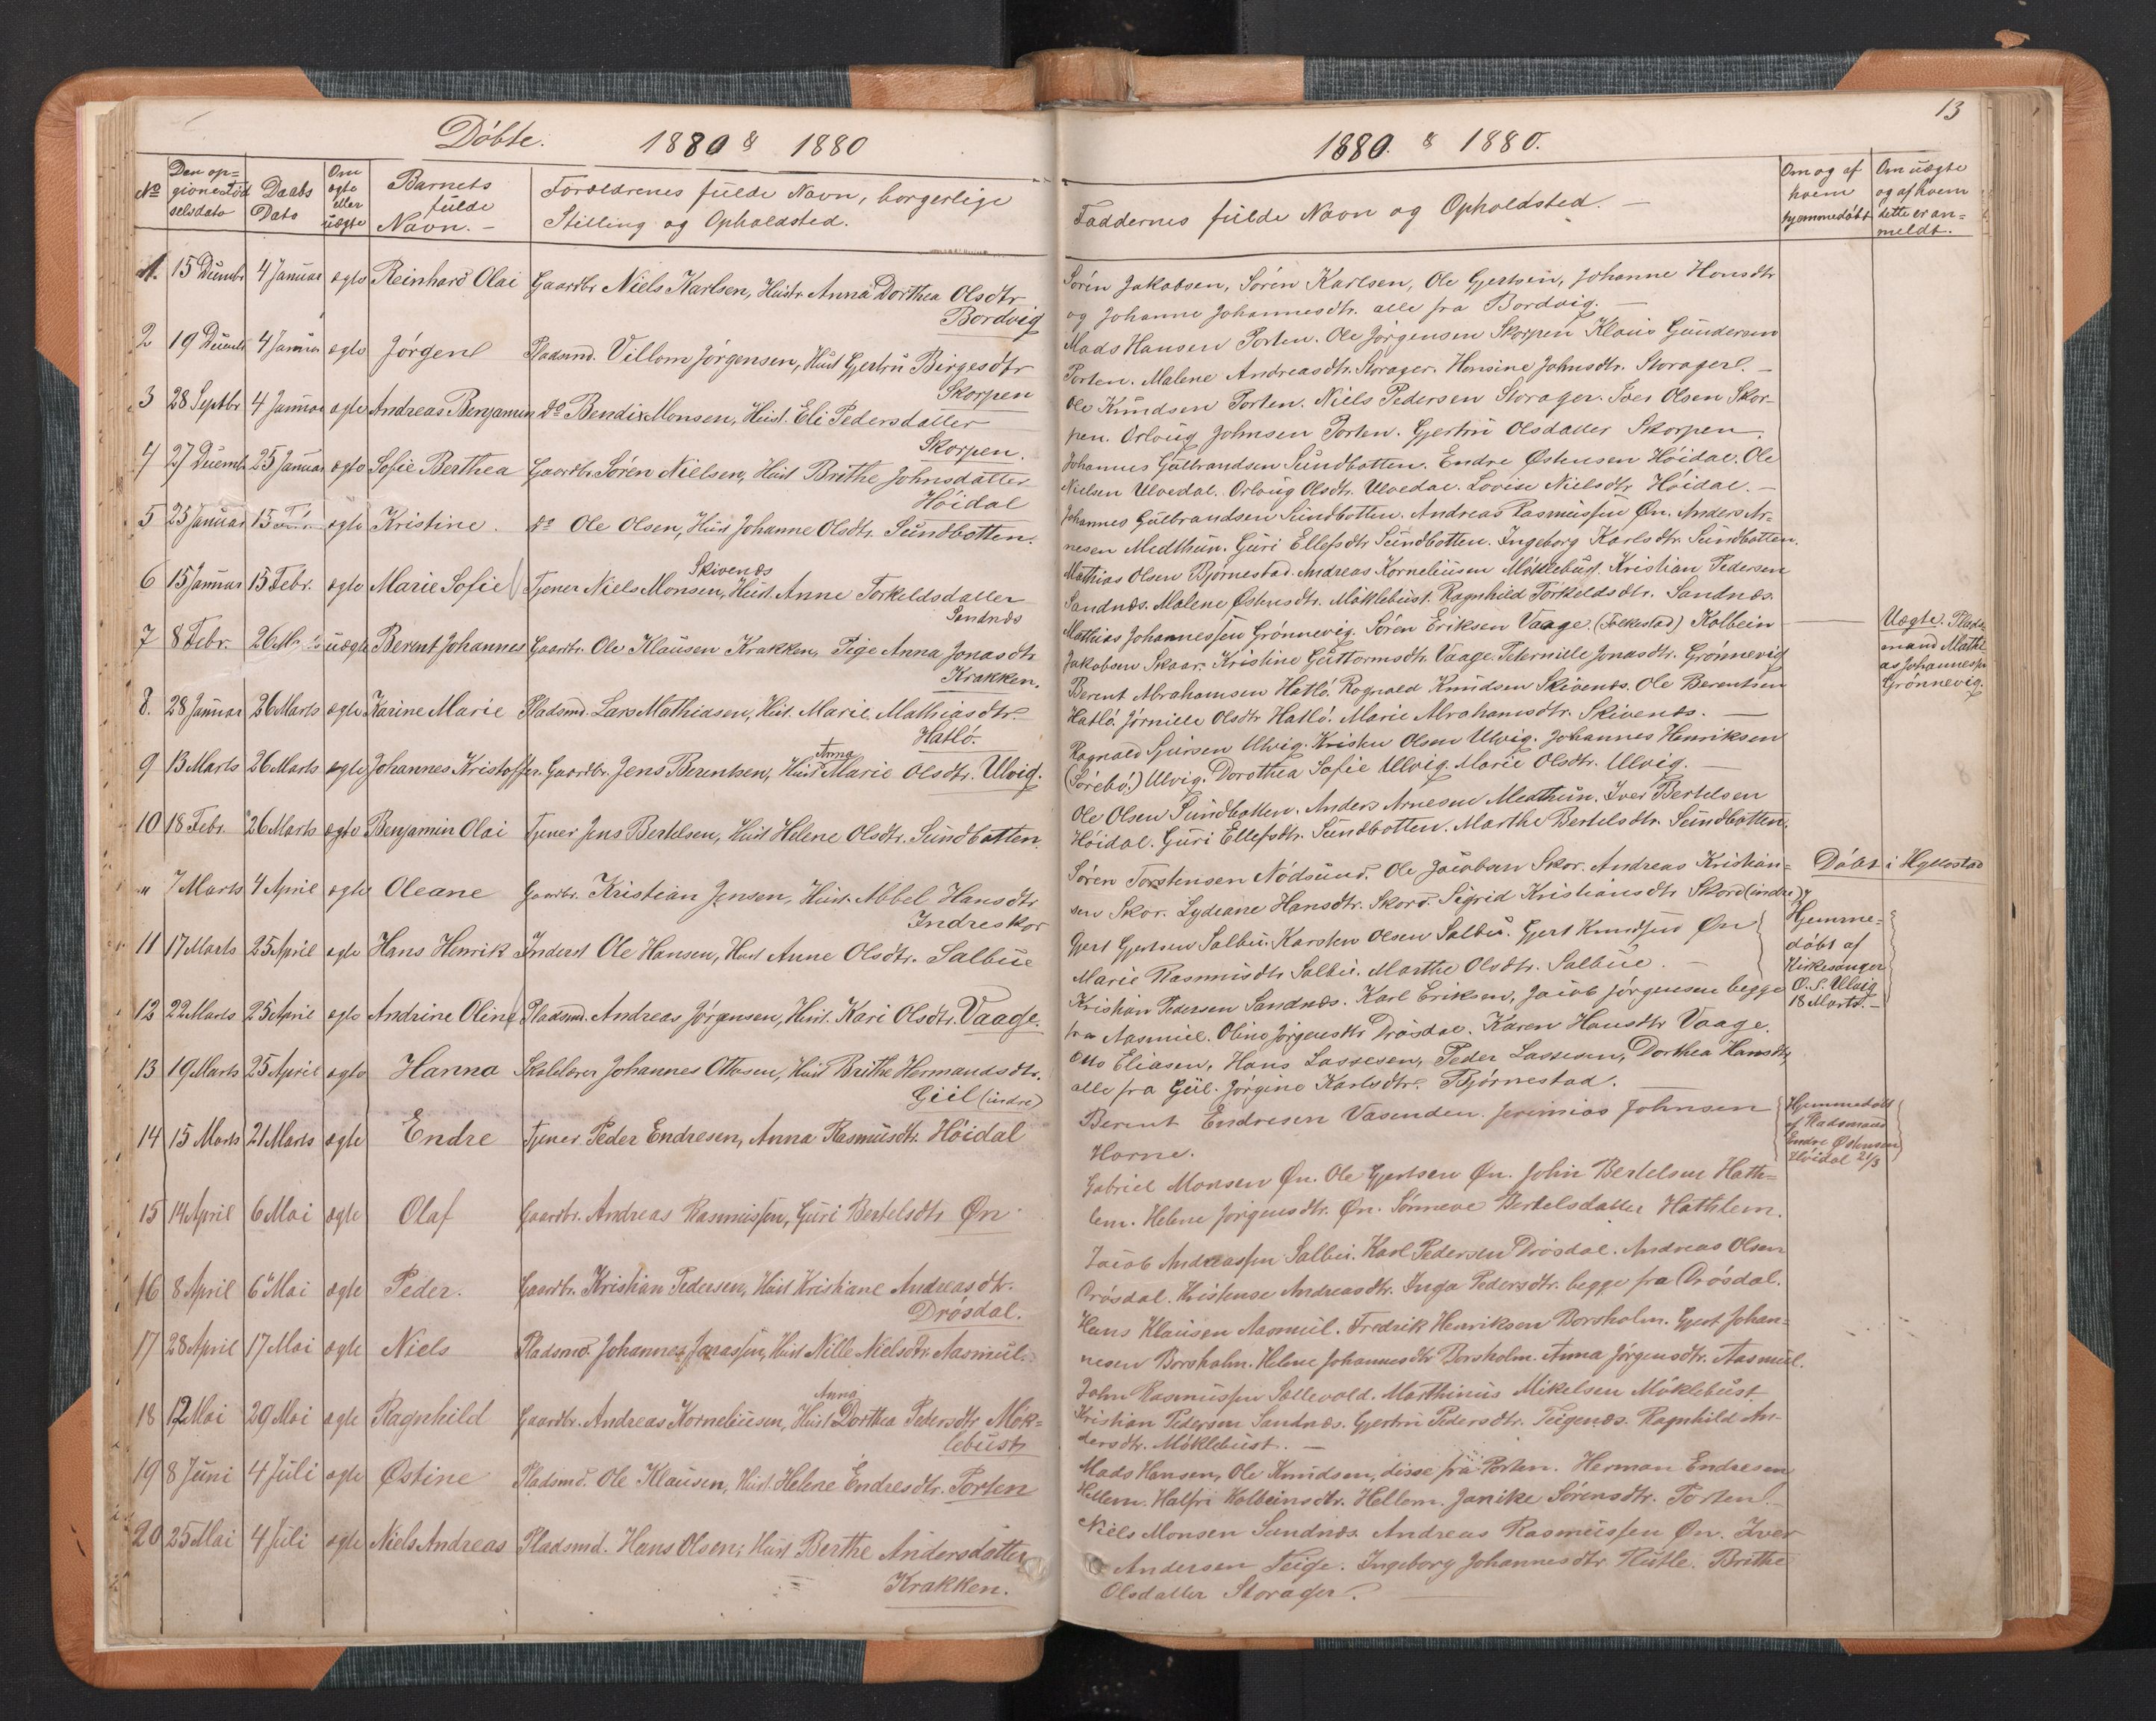 Döbte. 1880 & 1880
No
Den opgivne Födselsdato
Daabs Dato
Om ægte eller uægte
Barnets fulde Navn. –
Forældrenes fulde Navn, borgerlige
Stilling og Opholdsted.
1. 15 Decembr 4 Januar ægte Reinhard Olai Gaardbr Niels Karlsen, Hustr. Anna Dorthea Olsdtr
Bordvig
2 19 Decembr 4 Januar ægte Jörgen Pladsmd. Villom Jörgensen, Hust Gjertru Birgesdtr
Skorpen
3 28 Septbr 4 Januar ægte Andreas Benjamin do Bendix Monsen, Hust. Eli Pedersdatter
Skorpen.
4 27 Decemb 25 Januar ægte Sofie Berthea Gaardbr. Sören Nielsen, Hust Brithe Johnsdatter
Höidal
5 23 Januar 15 ægte Kristine. do Ole Olsen, Hust Johanne Olsdtr. Sundbotten.
Skivenæs
6 15 Januar 15 Febr. ægte Marie Sofie Tjener Niels Monsen, Hust. Anne Torkeldsdatter
Sandnæs
7 8 Febr. 26 uægte Berent Johannes Gaardbr. Ole Klausen Krakken, Pige Anna Jonasdtr
Krakken.
8. 28 Januar 26 Marts ægte Karine Marie Pladsmd. Lars Mathiasen, Hust. Marie Mathiasdtr.
Hatlö.
Anna
9 13 Marts 26 Marts ægte Johannes Kristoffer. Gaardbr. Jens Berentsen, Hust Marie Olsdtr. Ulvig.
10 18 Febr. 26 Marts ægte Benjamin Olai Tjener Jens Bertelsen, Hust Helene Olsdtr. Sundbotten.
" 7 Marts 4 April ægte Oleane Gaardbr. Kristian Jensen, Hust. Abbel Hansdtr
Indreskor
11 17 Marts 25 April ægte Hans Henrik Inderst Ole Hansen, Hust Anne Olsdtr. Salbue
12 22 Marts 25 April ægte Andrine Oline Pladsmd. Andreas Jörgensen, Hust. Kari Olsdtr. Vaage.
13 19 Marts 25 April ægte Hanna Skolelærer Johannes Ottosen, Hust Brithe Hermandsdtr.
Giil (indre)
14 15 Marts 21 Marts ægte Endre Tjener Peder Endresen, Anna Rasmusdtr. Höidal
15 14 April 6 Mai ægte Olaf Gaardbr. Andreas Rasmussen, Guri Bertelsdtr Øn
16 8 April 6 Mai ægte Peder. Gaardbr. Kristian Pedersen, Hust Kristiane Andreasdtr.
Drösdal.
17 28 April 17 Mai ægte Niels Pladsmd. Johannes Jonassen, Hust Nille Nielsdtr. Aasmul.
Anna
18 12 Mai 29 Mai ægte Ragnhild Gaardbr. Andreas Korneliusen, Hust Dorthea Pedersdtr Mök=
lebust
19 8 Juni 4 Juli ægte Østine Pladsmd. Ole Klausen, Hust. Helene Endresdtr. Porten
20 25 Mai 4 Juli ægte Niels Andreas Pladsmd. Hans Olsen, Hust Berthe Andersdotter
Krakken.
13
1880. & 1880.
Faddernes fulde Navn og Opholdsted. –
Om og af hvem hjemmedöbt
Om uægte og af hvem dette er anmeldt.
Sören Jakobsen, Sören Karlsen, Ole Gjertsen, Johanne Hansdtr
og Johanne Johannesdtr. alle fra Bordvig. –
Mads Hansen Porten. Ole Jörgensen Skorpen Klaus Gundersen
Porten. Malene Andreasdtr. Storager. Hansine Johnsdtr. Storager. –
Ole Knudsen Porten. Niels Pedersen Storager. Iver Olsen Skor-
pen. Orloug Johnsen Porten. Gjertru Olsdatter Skorpen.
Johannes Gulbrandsen Sundbotten. Endre Østensen Höidal. Ole
Nielsen Ulvedal. Orloug Olsdtr. Ulvedal. Lovise Nielsdtr Höidal. –
Johannes Gulbrandsen Sundbotten. Andreas Rasmussen Øn. Anders Ar=
nesen Medthun. Guri Ellefsdtr Sundbotten. Ingeborg Karlsdtr. Sundbotten.
Mathias Olsen Bjørnestad. Andreas Korneliusen Möklebust. Kristian Pedersen
Sandnæs. Malene Østensdtr. Möklebust. Ragnhild Torkeldsdtr. Sandnæs.
Mathias Johannessen Grönnevig. Sören Eriksen Vaage. (Folkestad) Kolbein
Jakobsen Skaar. Kristine Guttormsdtr. Vaage. Peternille Jonasdtr. Grönnevig
Uægte. Plads=
mand Mathi=
as Johannessen
Grönnevig.
Berent Abrahamsen Hatlö. Ragnald Knudsen Skivenæs. Ole Berentsen
Hatlö. Jörnille Olsdtr Hatlö. Marie Abrahamsdtr. Skivenæs. –
Ragnald Sjursen Ulvig. Kristen Olsen Ulvig. Johannes Henriksen
(Sörebö.) Ulvig. Dorothea Sofie Ulvig. Marie Olsdtr. Ulvig. –
Ole Olsen Sundbotten. Anders Arnesen Medthun. Iver Bertelsen
Höidal. Guri Ellefsdtr. Sundbotten. Marthe Bertelsdtr. Sundbotten.
Sören Torstensen Nödsund. Ole Jacobsen Skor. Andreas Kristian=
sen Skor. Lydeane Hansdtr. Skord. Sigrid Kristiansdtr Skord (indre)
Döbt i Hyllestad
Gjert Gjertsen Salbu. Karsten Olsen Salbu. Gjert Knudsen Øn
Marie Rasmusdtr Salbu. Marthe Olsdtr. Salbue. –
Hjemme=
döbt af
Kirkesanger
O. S. Ulvig
18 Marts. –
Kristian Pedersen Sandnæs. Karl Eriksen, Jacob Jörgensen begge
fra Aasmul. Oline Jörgensdtr Drösdal. Karen Hansdtr Vaage.
Otto Eliasen, Hans Lassesen, Peder Lassesen, Dorthea Hansdtr
alle fra Giil. Jörgine Karlsdtr. Bjørnestad. –
Berent Endresen Vasenden. Jerimias Johnsen
Horne.
Hjemmedöbt
af Pladsmand
Endre Østensen
Höidal 21/3
Gabriel Monsen Øn. Ole Gjertsen Øn. John Bertelsen Hath=
lem. Helene Jörgensdtr. Øn. Sönneve Bertelsdatter Hathlem.
Jacob Andreassen Salbu. Karl Pedersen Drösdal. Andreas Olsen
Drösdal. Kistense Andreasdtr. Inga Pedersdtr. begge fra Drösdal.
Hans Klausen Aasmul. Fredrik Henriksen Borsholm. Gjert Johan=
nesen Borsholm. Helene Johannesdtr Borsholm. Anna Jörgensdtr. Aasmul.
John Rasmussen Sællevold. Marthinus Mikelsen Möklebust
Kristian Pedersen Sandnæs. Gjertru Pedersdtr. Teigenæs. Ragnhild An-
dersdtr. Möklebust. –
Mads Hansen, Ole Knudsen, disse fra Porten. Herman Endresen
Hellem. Halfri Kolbeinsdtr. Hellem. Janike Sörensdtr. Porten. –
Niels Monsen Sandnæs. Andreas Rasmussen Øn. Iver
Andersen Teige. Ingeborg Johannesdtr. Rutle. Brithe
Olsdatter Storager.